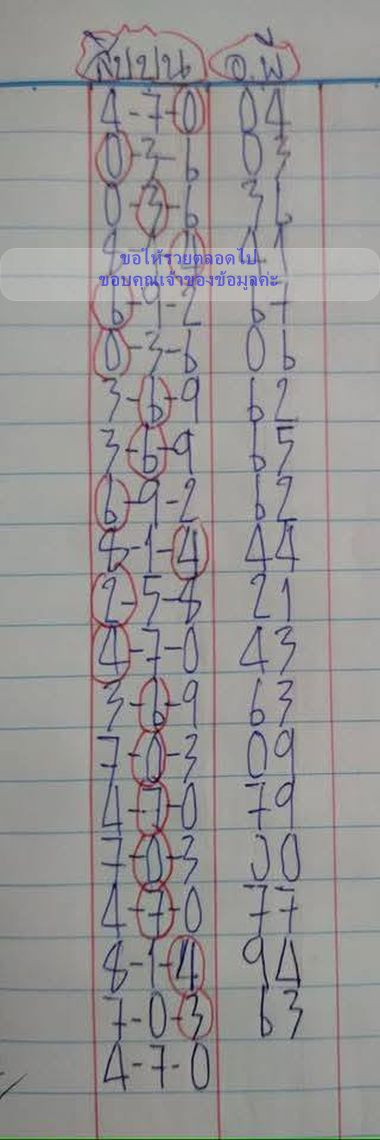 สิบบน อ.พี
4-7-0 04
0-3-6 03
0-3-6 36
ขอให้รวยตลอดไป
ขอบคุณเจ้าของข้อมูลค่ะ
6-9-2 67
0-3-6 06
3-6-9 62
3-6-9 65
6-9-2 62
8-1-4 44
2-5-8 21
4-7-0 43
3-6-9 63
7-0-3 09
4-7-0 79
7-0-3 00
4-7-0 77
8-1-4 94
7-0-3 63
4-7-0